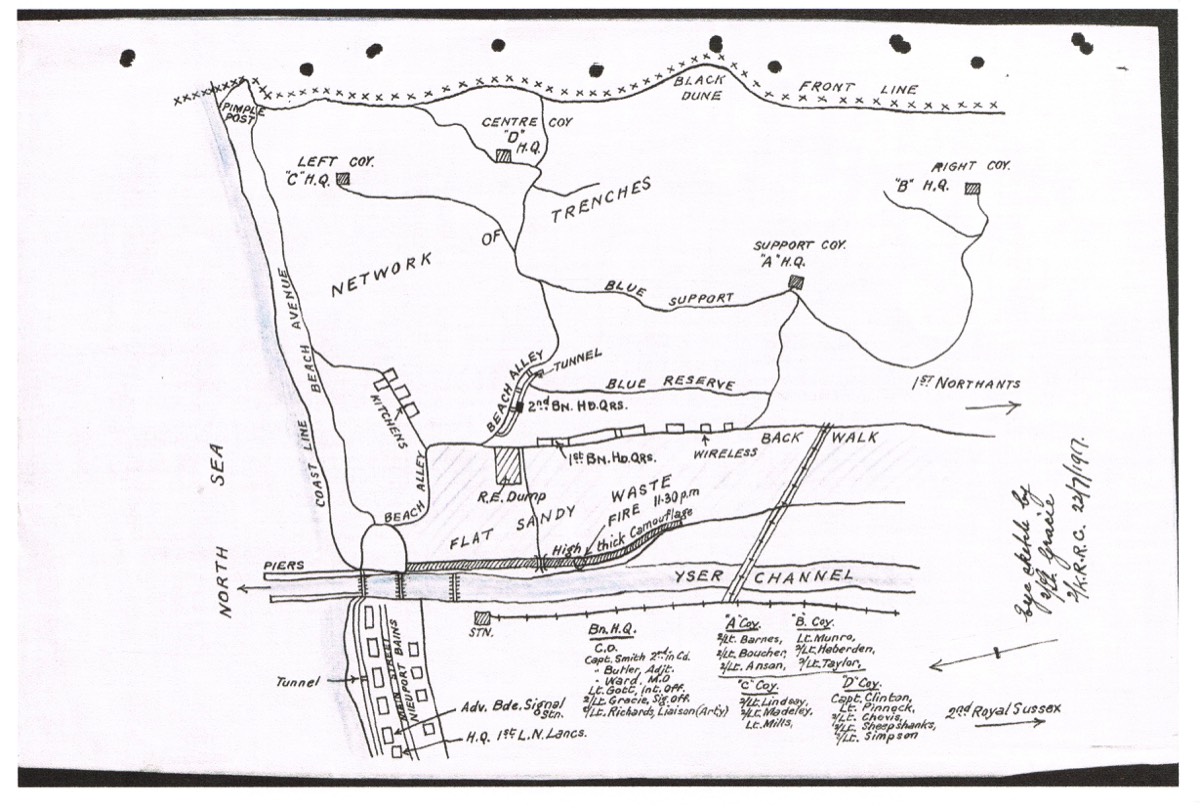 PIMPLE
POST
BLACK
DUNE
FRONT LINE
CENTRE COY
"D"
H.Q.
LEFT COY.
"C" H.Q.
RIGHT COY.
"B" H.Q.
NETWORK OF TRENCHES
SUPPORT COY.
"A" H.Q.
BLUE SUPPORT
BEACH AVENUE
COAST LINE
NORTH SEA
KITCHENS
BEACH ALLEY
TUNNEL
2nd BN. HD. QRS.
BLUE RESERVE
1ST NORTHANTS
1st BN. HD. QRS.
WIRELESS
BACK WALK
BEACH ALLEY
R.E. Dump
FLAT SANDY WASTE
FIRE 11.30 p.m
High thick Camouflage
PIERS
YSER CHANNEL
STN.
MAIN STREET
NIEUPORT BAINS
Tunnel
Adv. Bde. Signal
Stn.
H.Q. 1st L.N. Lancs.
Bn. H.Q.
C.O.
Capt. Smith 2nd in Cd.
" Butler, Adjt.
" Ward. M.O
Lt. Gott, Int. Off.
2/Lt. Gracie, Sig. Off.
2/Lt. Richards, Liaison (Arty)
"A" Coy.
2/Lt. Barnes,
2/Lt. Boucher,
2/Lt. Anson,
"B. Coy.
Lt. Munro,
2/Lt. Heberden,
2/Lt. Taylor,
"C" Coy
2/Lt. Lindsay,
2/Lt. Madeley.
Lt. Mills,
"D" Coy.
Capt. Clinton,
Lt. Pinnock,
2/Lt. Chevis,
2/Lt. Sheepshanks,
2/Lt. Simpson
2nd Royal Sussex
Eye sketch by
2/Lt Gracie
2/K.R.R.C. 22/7/1917.